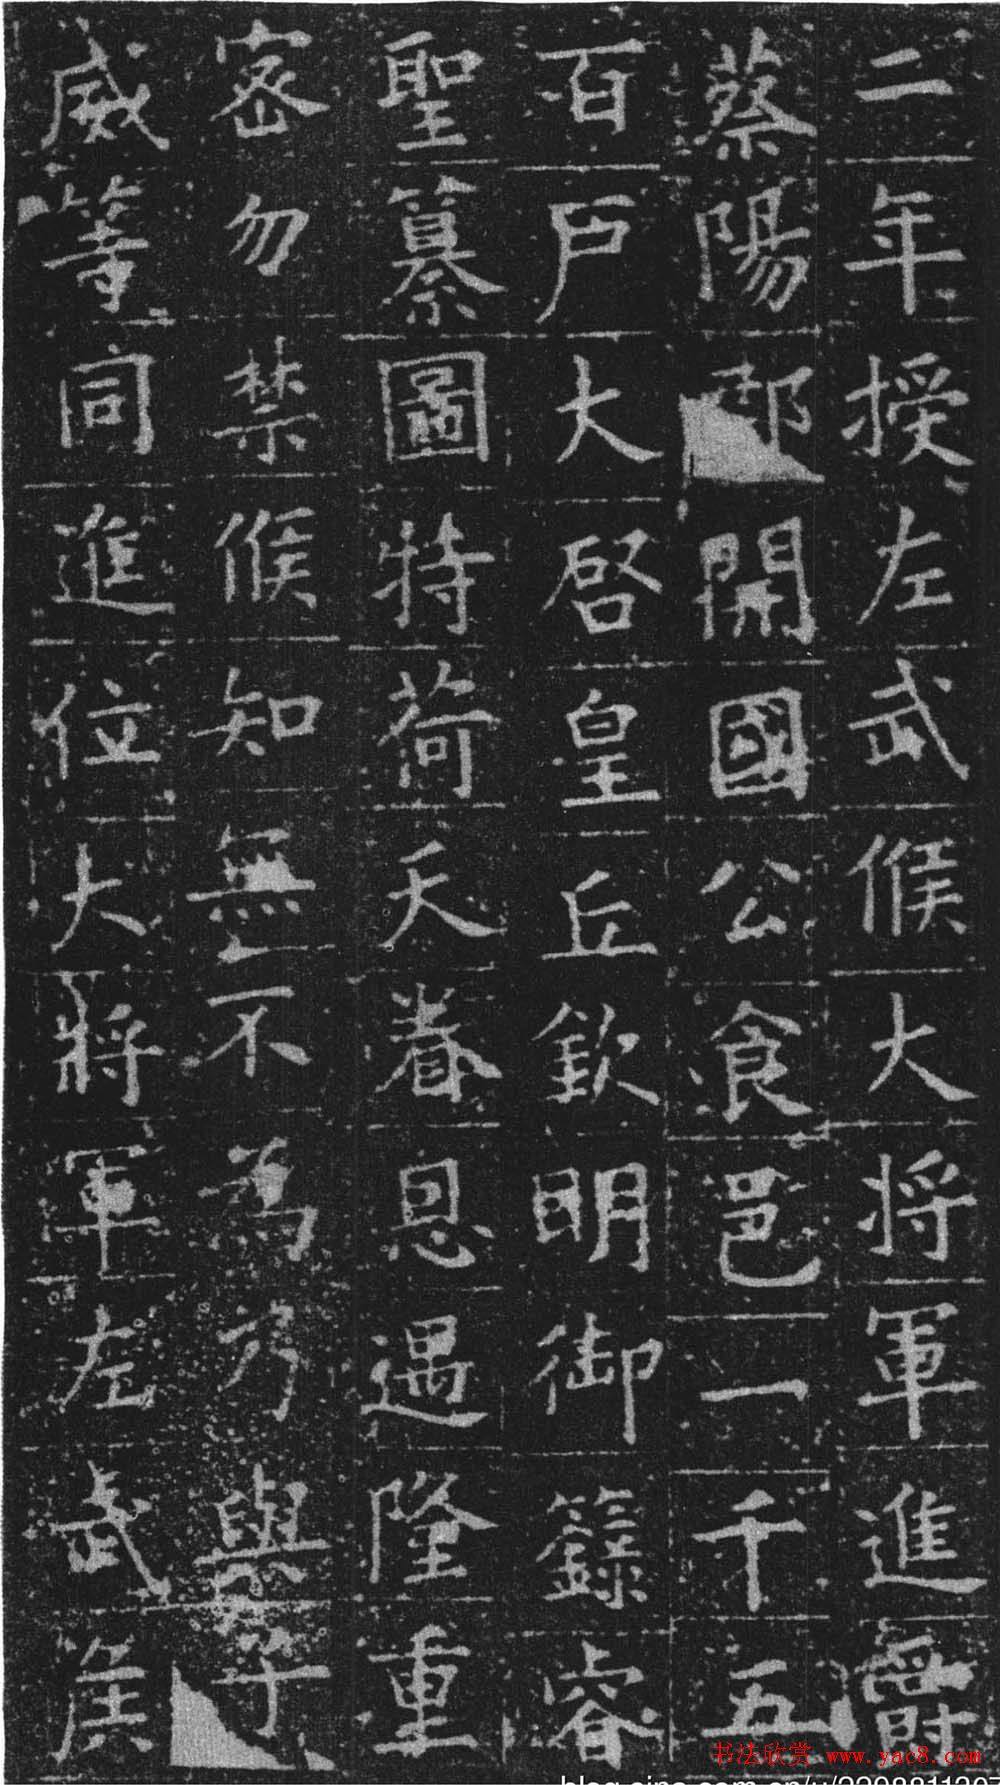 二年授左武候大将軍進爵
蔡陽郡開國公食邑一千五
百戶大啓皇丘欽明御籙睿
聖纂圖特荷天眷恩遇隆重
密勿禁候知無不為乃與子
威等同進位大將軍左武候
书法欣赏 www.yac8.com